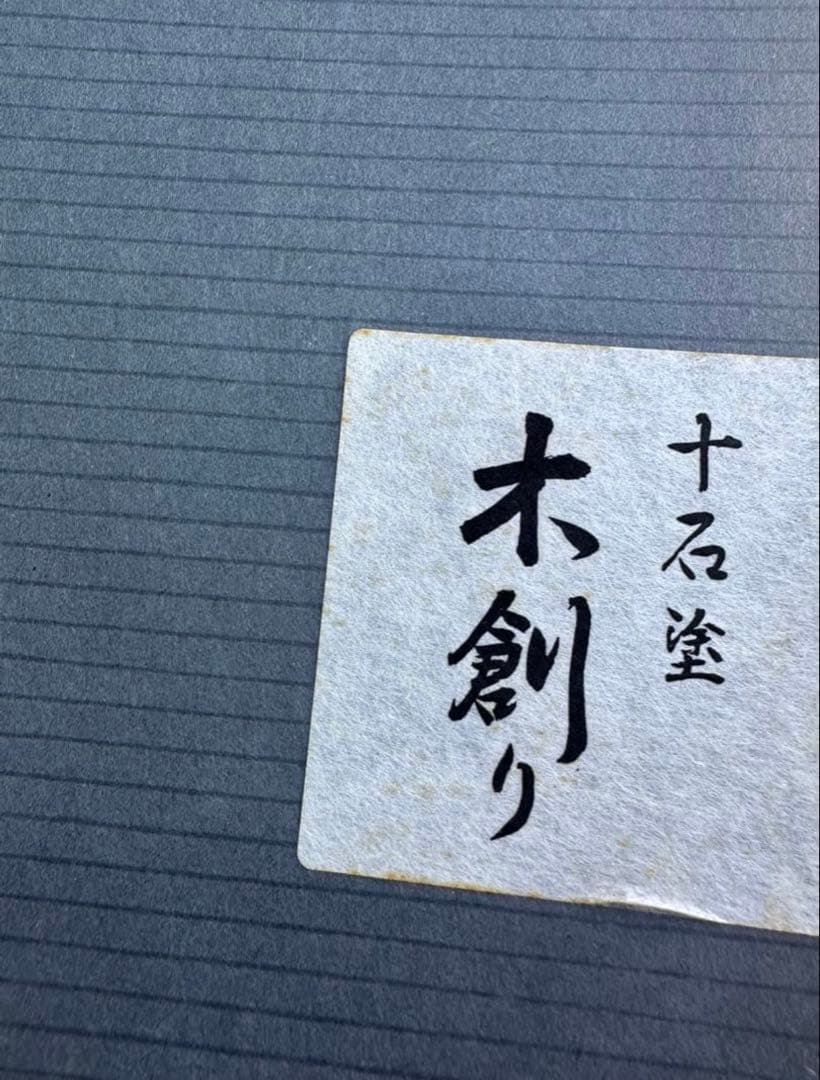 十石塗
木創り